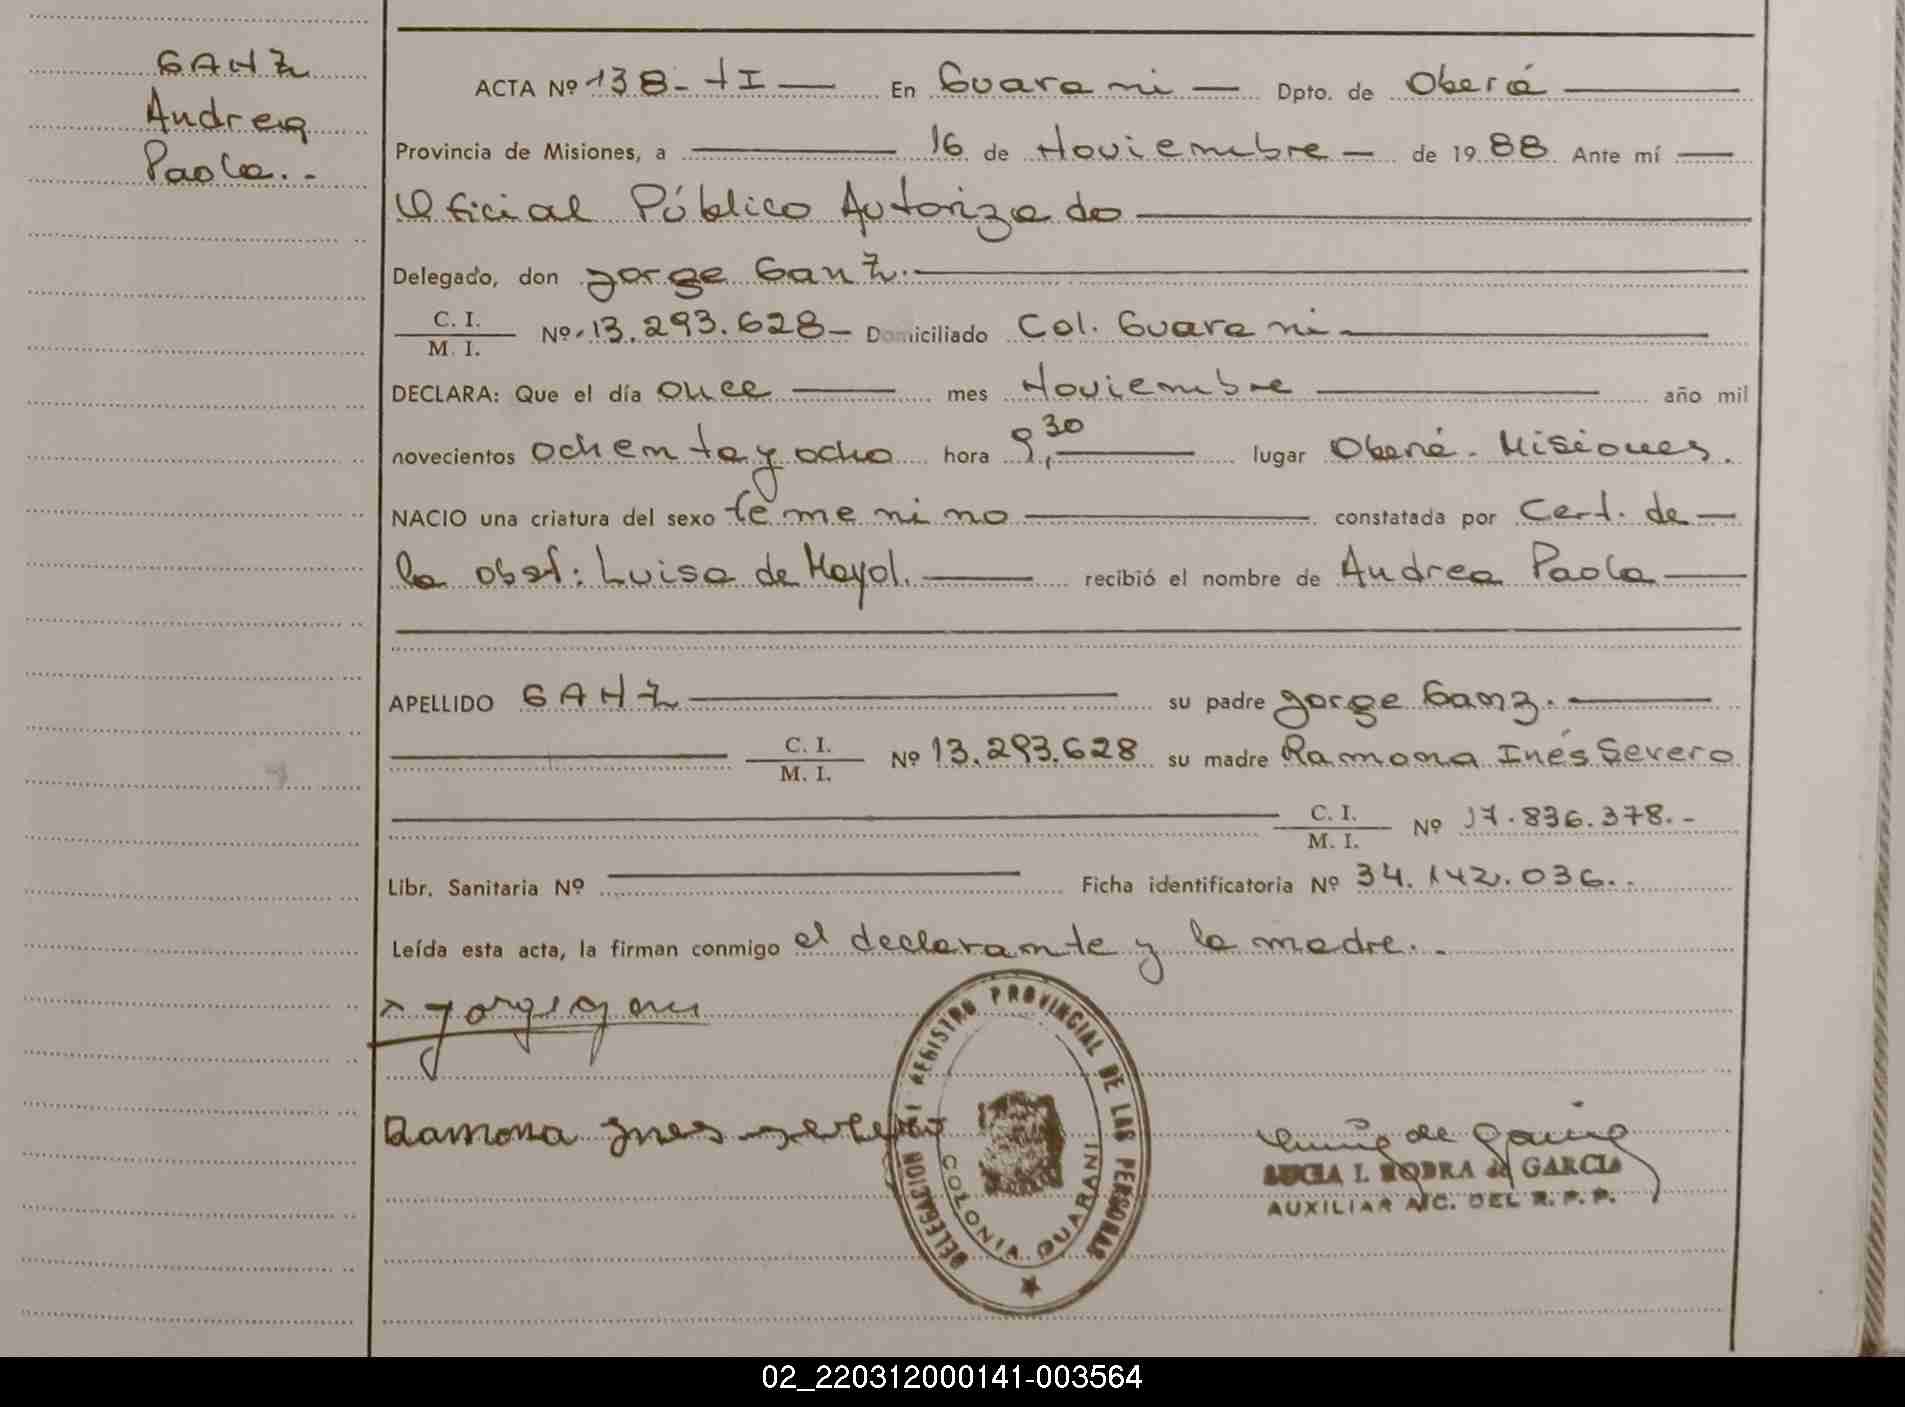 GANZ
Andrea
Paola.-
ACTA Nº 138 - tI — En Guarani — Dpto. de Oberá
Provincia de Misiones, a 16 de Noviembre — de 19 88 Ante mí —
Oficial Público Autorizado
Delegado, don Jorge Ganz.
C. I.
M. I.
Nº 13.293.628 - Domiciliado Col. Guarani
DECLARA: Que el día once mes Noviembre año mil
novecientos ochenta y ocho hora 9,30 lugar Oberá - Misiones.
NACIO una criatura del sexo femenino constatada por Cert. de
la obst: Luisa de Mayol. recibió el nombre de Andrea Paola
APELLIDO GANZ su padre Jorge Ganz.
C. I.
M. I.
Nº 13.293.628 su madre Ramona Inés Severo
C. I.
M. I.
Nº 17.836.378.-
Libr. Sanitaria Nº Ficha identificatoria Nº 34.142.036.
Leída esta acta, la firman conmigo el declarante y la madre.-
DELEGACION REGISTRO PROVINCIAL DE LAS PERSONAS
COLONIA GUARANI
Ramona Ines Severo
de Garcia
LUCIA I. RODRA de GARCIA
AUXILIAR A/C. DEL R. P. P.
02_220312000141-003564